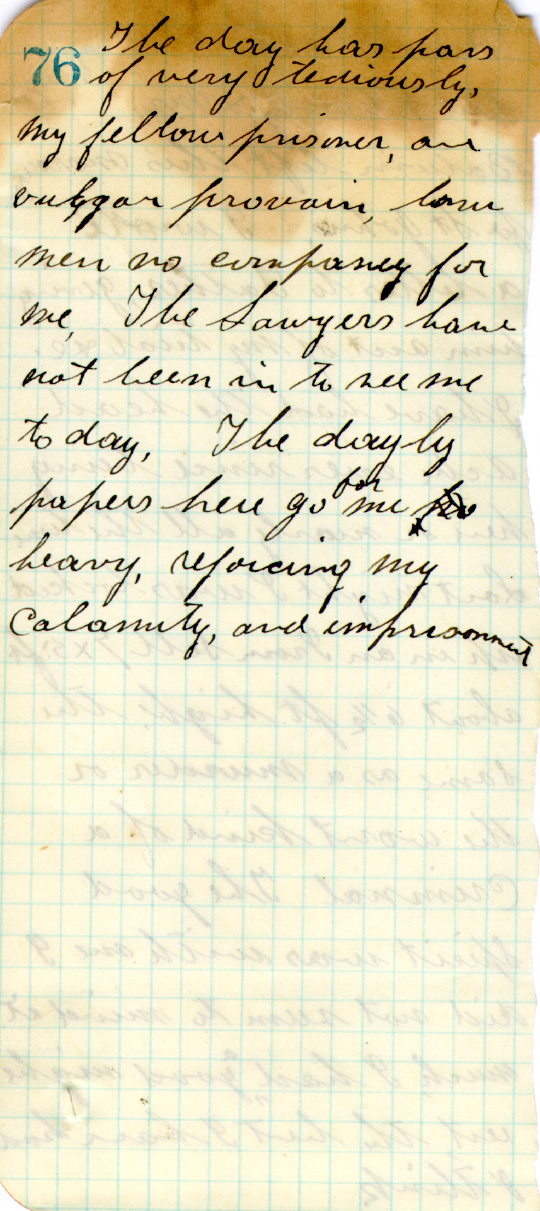 76
The day has pass
of very tediously,
my fellow prisoner, are
vulgar provain, low
men no company for
me, The Lawyers have
not been in to see me
to day, The dayly
papers here go for me
heavy, rejoicing my
Calamity, and imprisonment